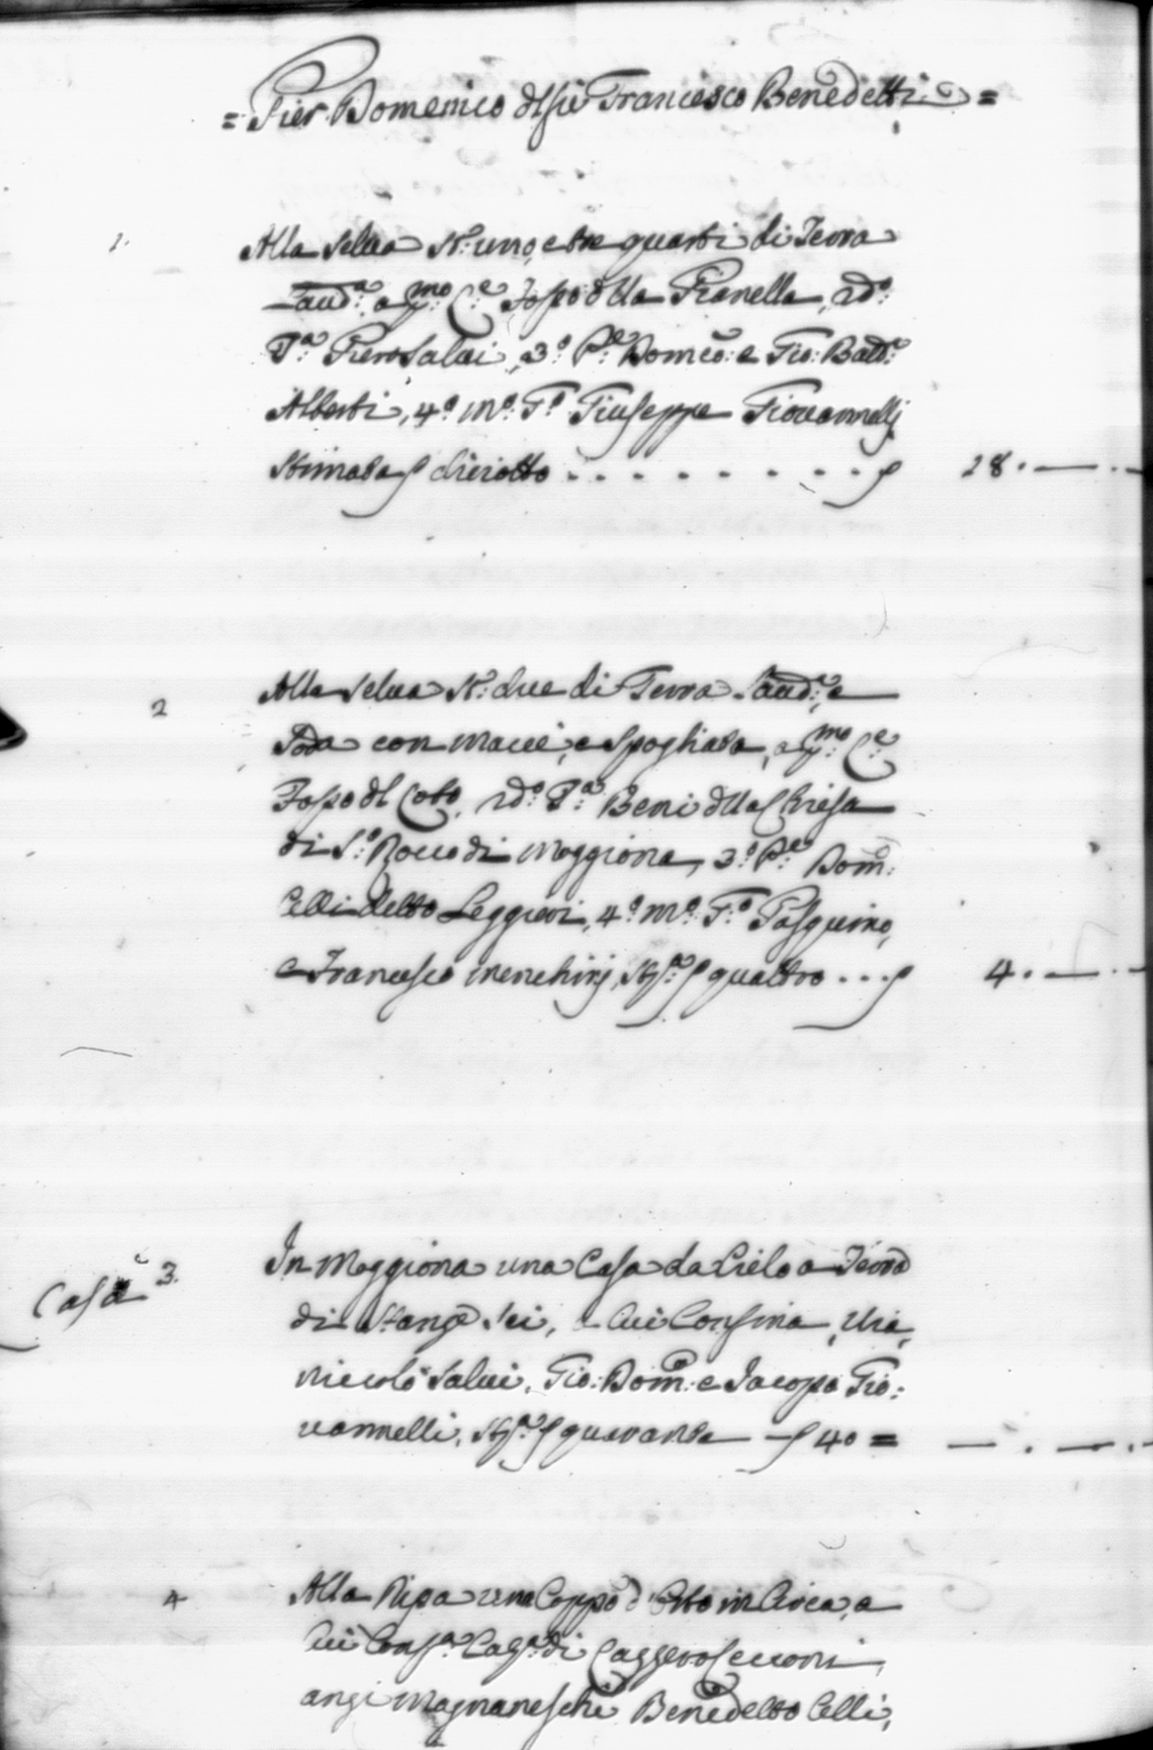 = Pier Domenico dl fù Francesco Benedetti =
1. Alla Selua St: uno, e tre quarti di Terra
Laud:ª a p:mo C:e Fosso della Pianella, 2do
P:ª Piero Salvi, 3:º P:e Domco: e Gio: Batta
Alberti, 4:º m:º G:º Giuseppe Giovannelli
Stimata diciotto 28. — . —
2 Alla Selua St: due di Terra Laud:ª, e
Soda con macie, e Spogliata, a p:mo C:e
Fosso dl Coto, 2do P:ª Beni dlla Chiesa
di S:º Rocco di Moggiona, 3:º P:e Dom:
Celli detto Leggieri, 4:º m:º G:º Pasquino,
e Francesco menchinj, St:ª quattro 4. — . —
Casa 3. In Moggiona una Casa da Cielo a Terra
di Stanze Sei, a Cui Confina, Via,
Niccolò Salvi, Gio: Dom: e Jacopo Gio:
vannelli, St:ª quaranta — 40 = — . — .
4 Alla Ripa una Coppo d'Orto in Circa, a
Cui Conf:ª di
angi Magnaneschi Benedetto Celli,